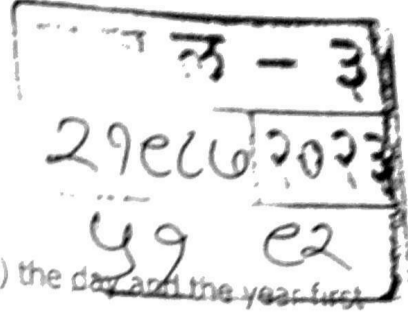 ल - ३
२१९८७ २०२३
५१ ९२
) the day and the year first